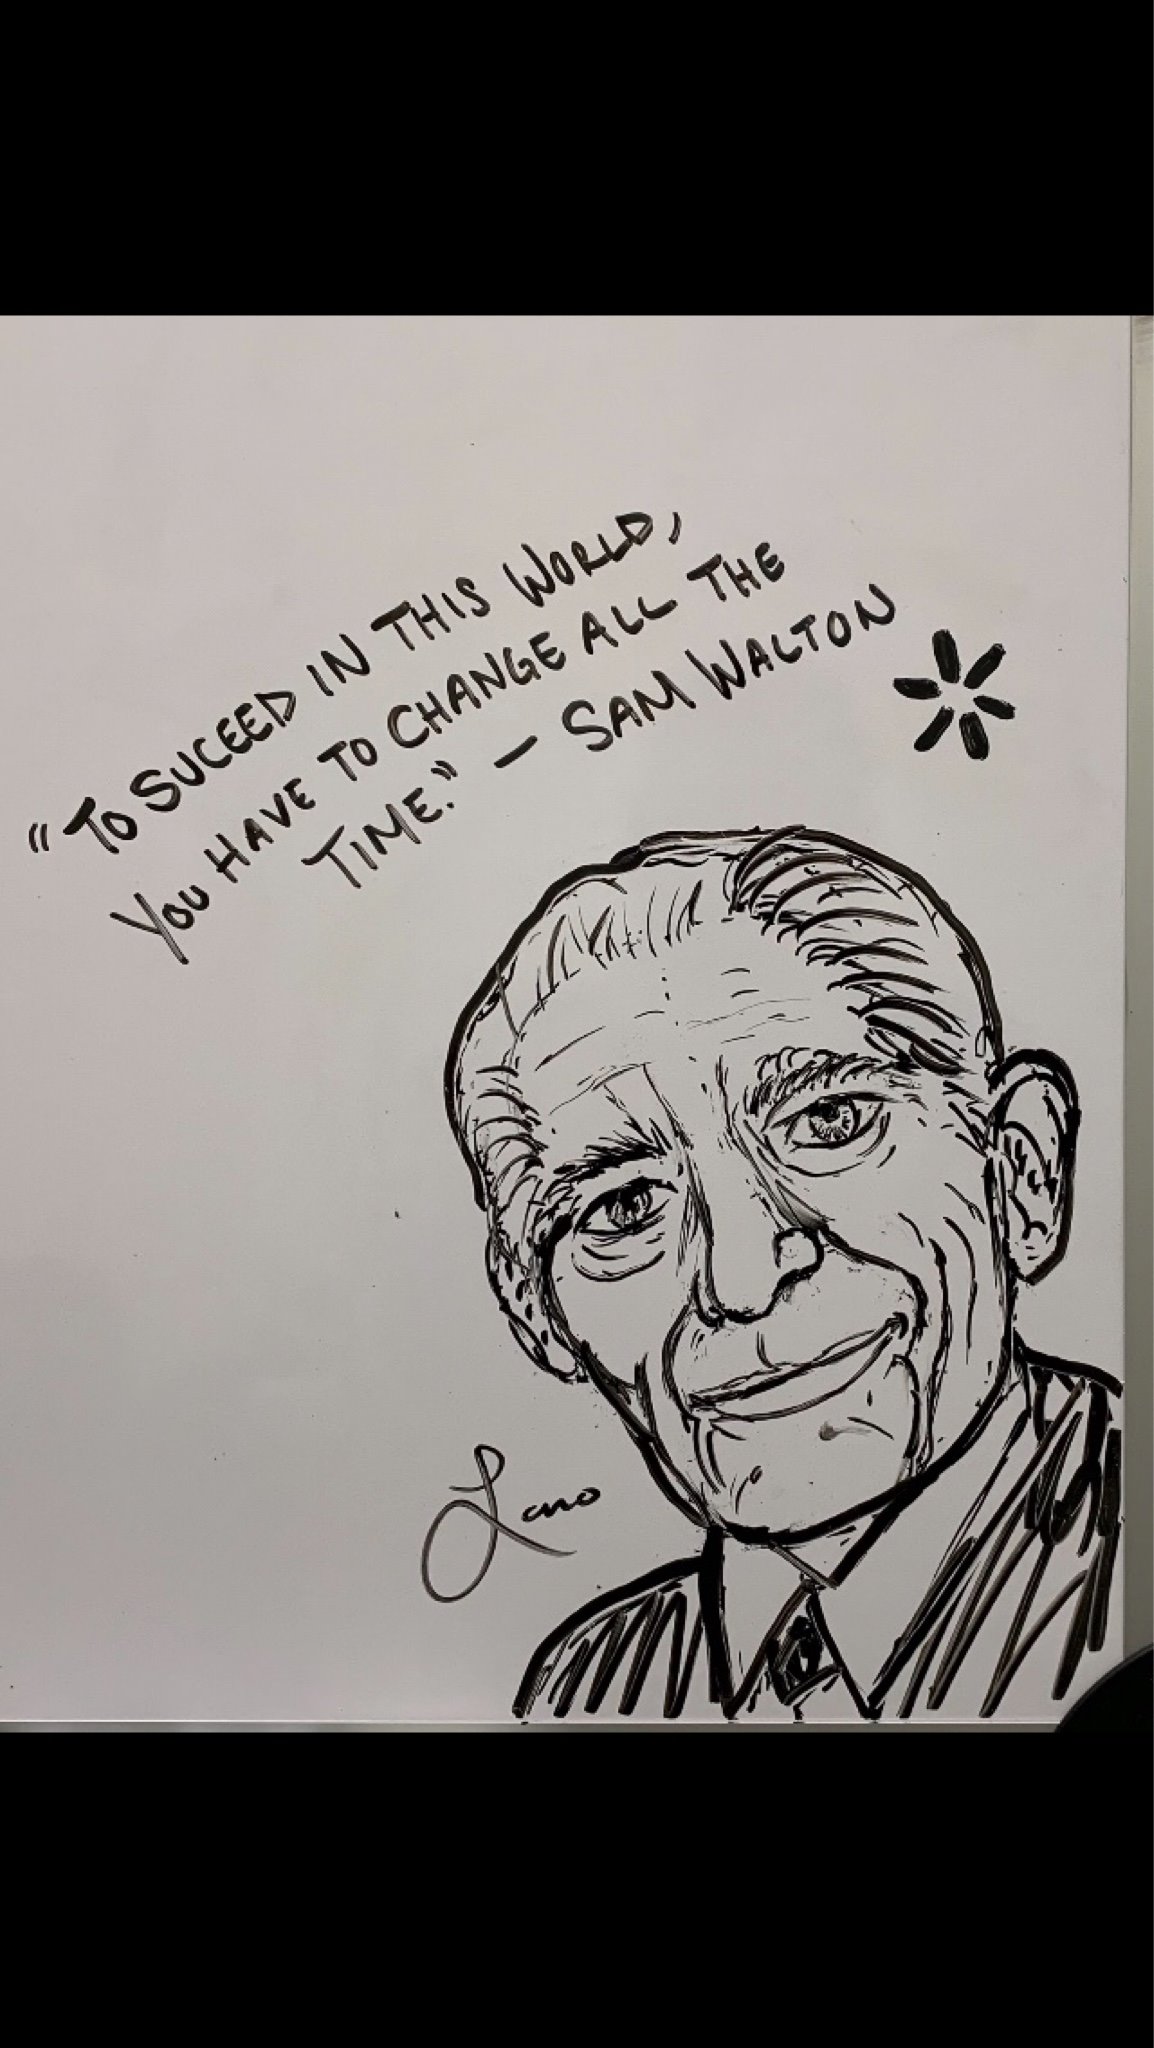 "TO SUCEED IN THIS WORLD,
YOU HAVE TO CHANGE ALL THE
TIME." — SAM WALTON